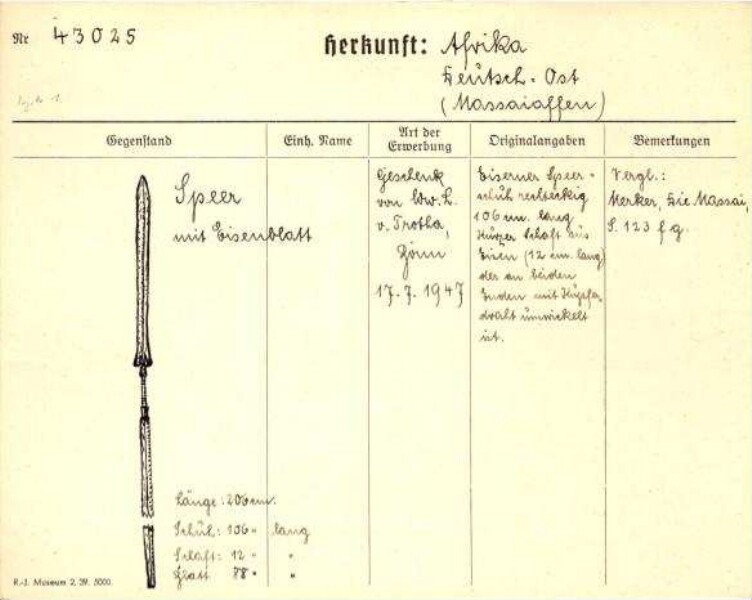 Nr 43025
Herkunft: Afrika
Deutsch-Ost
(Massaiaffen)
Gegenstand
Einh. Name
Art der
Erwerbung
Originalangaben
Bemerkungen
Speer
mit Eisenblatt
Länge: 206 cm.
Schuh: 106 " lang
Schaft: 12 " "
Blatt 88 " "
Geschenk
von Ww. L.
v. Trotha,
Bonn
17.7.1947
Eiserner Speer-
schuh rechteckig
106 cm. lang
Kurzer Schaft aus
Eisen (12 cm. lang)
der an beiden
Enden mit Kupfer
draht umwickelt
ist.
Vergl.:
Merker, Die Massai,
S. 123 f g.
R.-J. Museum 2. 39. 5000.